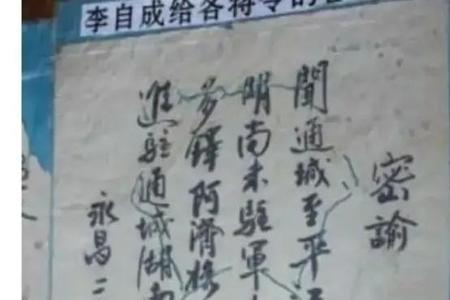 李自成给各将令的
密諭
聞通城至平江
朙南未駐軍
多鐸阿濟格
進駐通城湖南
永昌二